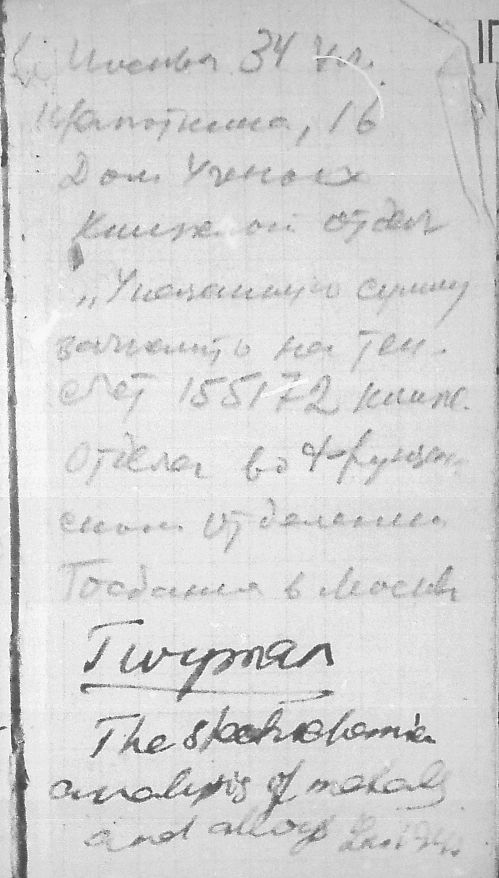 Москва 34 ул.
Кропоткина, 16
Дом Ученых
Книжной отдел
„Указанную сумму
зачислить на тек.
счет 155172 книж.
отдела во Фрунзен-
ском отделении
Госбанка в Москве
Twyman
The spectrochemical
analysis of metals
and alloys